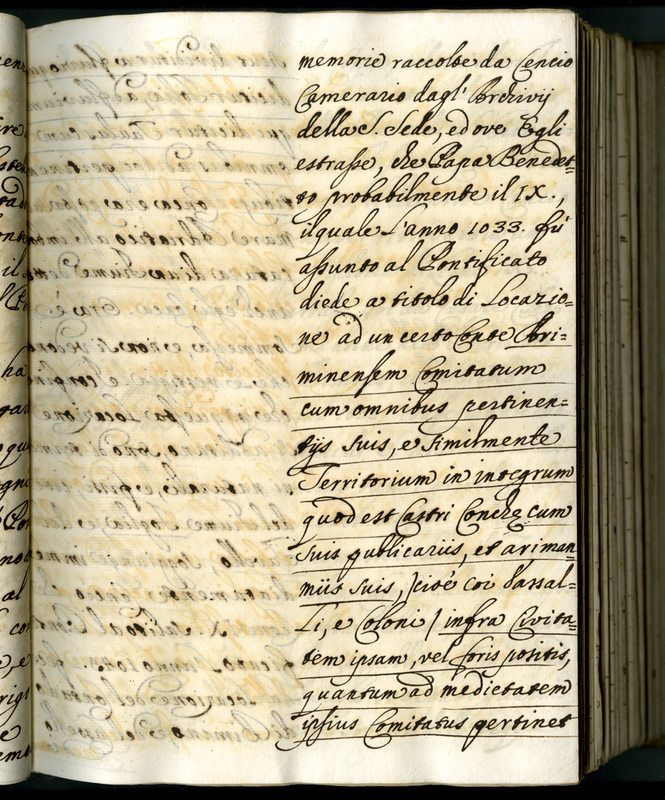 memorie raccolte da Cencio
Camerario dagl' Archivij
della S. Sede, ed ove Egli
estrasse, che Papa Benedet=
to probabilmente il IX.,
il quale l'anno 1033. fù
assunto al Pontificato
diede a titolo di Locazio=
ne ad un certo Conte Ari=
minensem Comitatum
cum omnibus pertinen=
tijs suis, e similmente
Territorium in integrum
quod est Castri Conche cum
suis publicariis, et ariman=
niis suis, /cioè coi Vassal=
li, e Coloni / infra Civita=
tem ipsam, vel foris positis,
quantum ad medietatem
ipsius Comitatus pertinet